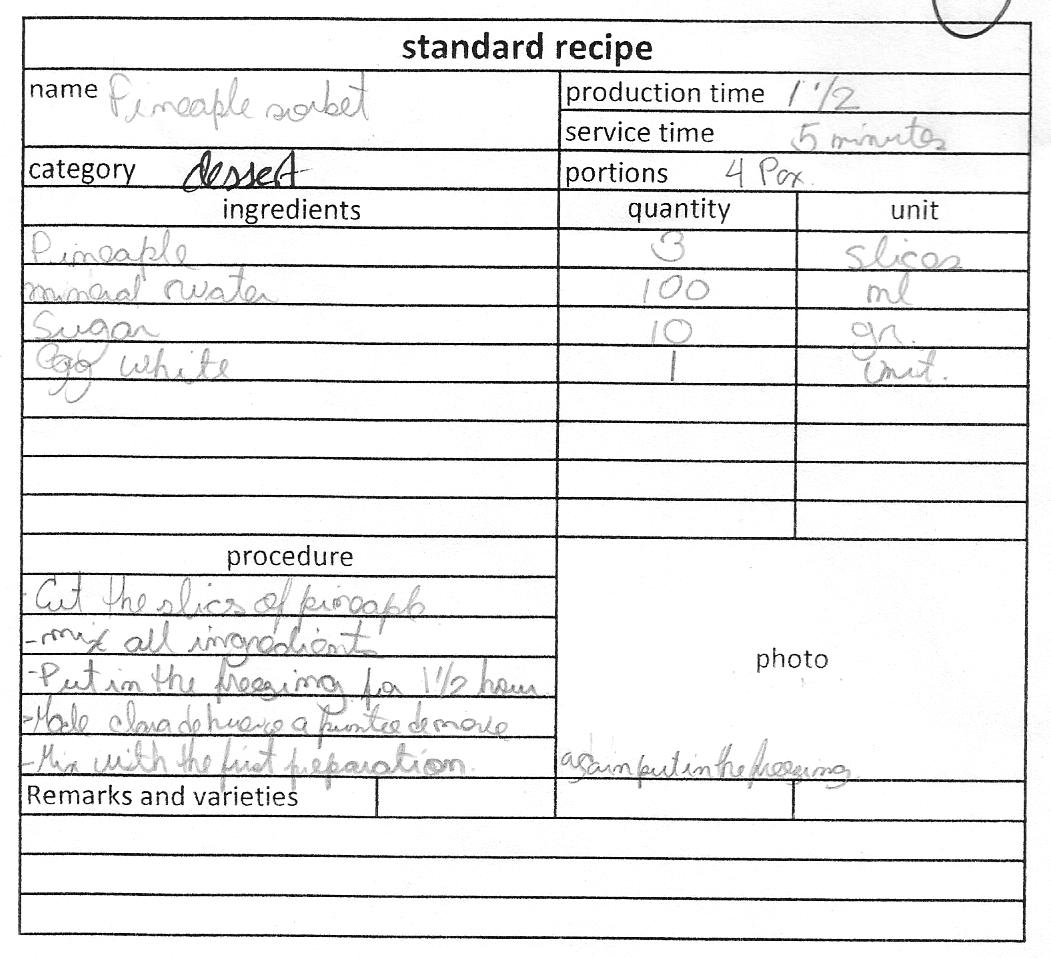 standard recipe
name Pineaple sorbet
production time 1 1/2
service time 5 minutes
category dessert
portions 4 Pax.
ingredients quantity unit
Pineaple 3 slices
mineral water 100 ml
Sugar 10 gr.
egg white 1 unit.
procedure
- Cut the slics of pineapple
- mix all ingredients
- Put in the freezing for 1 1/2 hour
- Made clara de huevo a punto de nieve
- Mix with the first preparation.
photo
again put in the freezing
Remarks and varieties